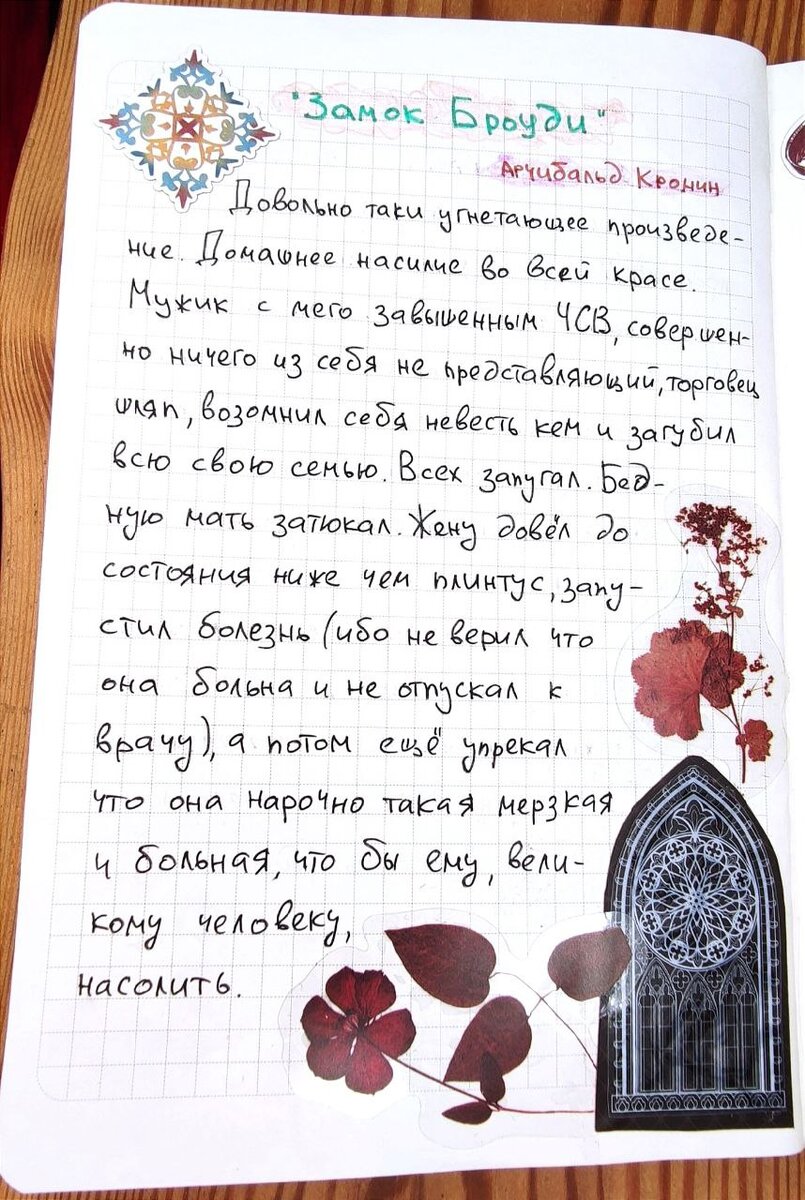 "Замок Броуди"
Арчибальд Кронин
Довольно таки угнетающее произведе-
ние. Домашнее насилие во всей красе.
Мужик с мего завышенным ЧСВ, совершен-
но ничего из себя не представляющий, торговец
шляп, возомнил себя невесть кем и загубил
всю свою семью. Всех запугал. Бед-
ную мать затюкал. Жену довёл до
состояния ниже чем плинтус, запу-
стил болезнь (ибо не верил что
она больна и не отпускал к
врачу), а потом ещё упрекал
что она нарочно такая мерзкая
и больная, что бы ему, вели-
кому человеку,
насолить.